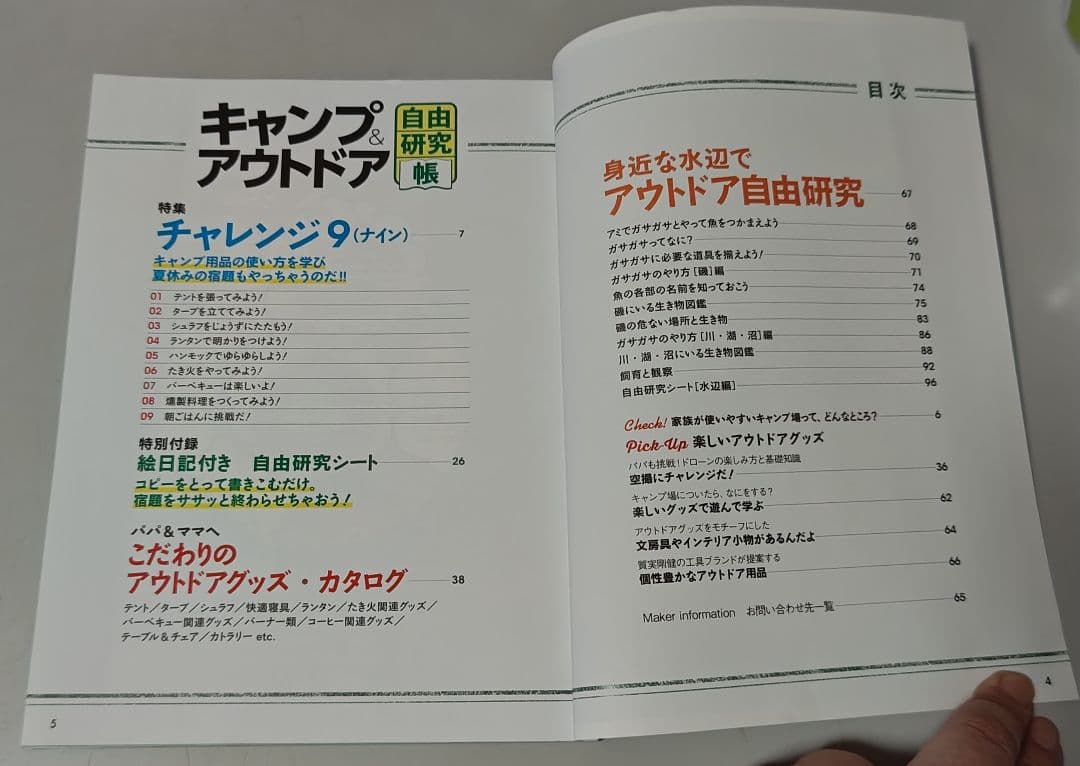 キャンプ&
アウトドア
自由
研究
帳
特集
チャレンジ9(ナイン) 7
キャンプ用品の使い方を学び
夏休みの宿題もやっちゃうのだ!!
01 テントを張ってみよう!
02 タープを立ててみよう!
03 シュラフをじょうずにたたもう!
04 ランタンで明かりをつけよう!
05 ハンモックでゆらゆらしよう!
06 たき火をやってみよう!
07 バーベキューは楽しいよ!
08 燻製料理をつくってみよう!
09 朝ごはんに挑戦だ!
特別付録
絵日記付き 自由研究シート 26
コピーをとって書きこむだけ。
宿題をササッと終わらせちゃおう!
パパ&ママへ
こだわりの
アウトドアグッズ・カタログ 38
テント/タープ/シュラフ/快適寝具/ランタン/たき火関連グッズ/
バーベキュー関連グッズ/バーナー類/コーヒー関連グッズ/
テーブル&チェア/カトラリー etc.
5
目次
身近な水辺で
アウトドア自由研究 67
アミでガサガサとやって魚をつかまえよう 68
ガサガサってなに? 69
ガサガサに必要な道具を揃えよう! 70
ガサガサのやり方[磯]編 71
魚の各部の名前を知っておこう 74
磯にいる生き物図鑑 75
磯の危ない場所と生き物 83
ガサガサのやり方[川・湖・沼]編 86
川・湖・沼にいる生き物図鑑 88
飼育と観察 92
自由研究シート[水辺編] 96
Check! 家族が使いやすいキャンプ場って、どんなところ? 6
Pick-Up 楽しいアウトドアグッズ
パパも挑戦!ドローンの楽しみ方と基礎知識
空撮にチャレンジだ! 36
キャンプ場についたら、なにをする?
楽しいグッズで遊んで学ぶ 62
アウトドアグッズをモチーフにした
文房具やインテリア小物があるんだよ 64
質実剛健の工具ブランドが提案する
個性豊かなアウトドア用品 66
Maker information お問い合わせ先一覧 65
4